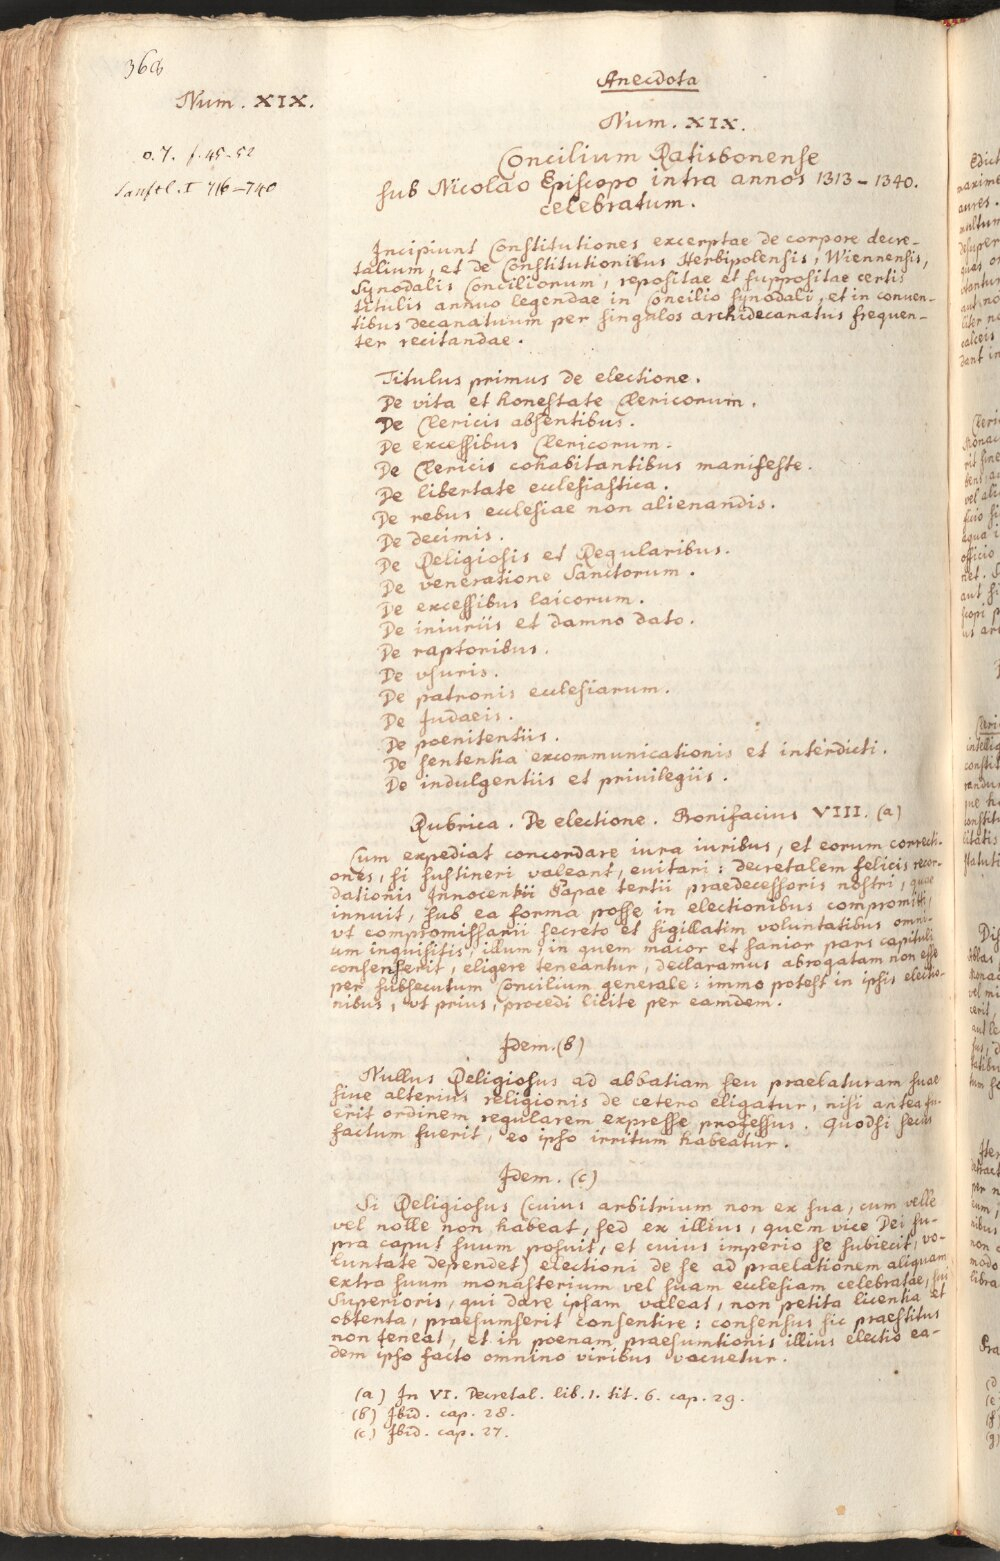 368
Num. XIX.
o. 7. f. 45-52
Sanftl. I 716-740
Anecdota
Num. XIX.
Concilium Ratisbonense
sub Nicolao Episcopo intra annos 1313-1340.
celebratum.
Incipiunt Constitutiones excerptae de corpore decre-
talium, et de Constitutionibus Herbipolensis, Wiennensis,
Synodalis Conciliorum, repositae et suppositae certis
titulis annuo legendae in Concilio synodali, et in conuen-
tibus decanatuum per singulos archidecanatus frequen-
ter recitandae.
Titulus primus de electione.
De vita et honestate Clericorum.
De Clericis absentibus.
De excessibus Clericorum.
De Clericis cohabitantibus manifeste.
De libertate ecclesiastica.
De rebus ecclesiae non alienandis.
De decimis.
De Religiosis et Regularibus.
De veneratione Sanctorum.
De excessibus laicorum.
De iniuriis et damno dato.
De raptoribus.
De vsuris.
De patronis ecclesiarum.
De Judaeis.
De poenitentiis.
De sententia excommunicationis et interdicti.
De indulgentiis et privilegiis.
Rubrica. De electione. Bonifacius VIII. (a)
Cum expediat concordare iura iuribus, et eorum correcti-
ones, si sustineri valeant, euitari: decretalem felicis recor-
dationis Innocentii Papae tertii praedecessoris nostri, quae
innuit, sub ea forma posse in electionibus compromitti,
vt compromissarii secreto et sigillatim voluntatibus omni-
um inquisitis, illum, in quem maior et sanior pars capituli
consenserit, eligere teneantur, declaramus abrogatam non esse
per subsecutum Concilium generale: immo potest in ipsis electio-
nibus, vt prius, procedi licite per eamdem.
Idem. (b)
Nullus Religiosus ad abbatiam seu praelaturam suae
siue alterius religionis de cetero eligatur, nisi antea fu-
erit ordinem regularem expresse professus. Quodsi secus
factum fuerit, eo ipso irritum habeatur.
Idem. (c)
Si Religiosus (cuius arbitrium non ex sua, cum velle
vel nolle non habeat, sed ex illius, quem vice Dei su-
pra caput suum posuit, et cuius imperio se subiecit, vo-
luntate dependet) electioni de se ad praelationem aliquam
extra suum monasterium vel suam ecclesiam celebratae, sui
Superioris, qui dare ipsam valeat, non petita licentia et
obtenta, praesumserit consentire: consensus sic praestitus
non teneat, et in poenam praesumtionis illius electio ea-
dem ipso facto omnino viribus vacuetur.
(a) In VI. Decretal. lib. 1. tit. 6. cap. 29.
(b) Ibid. cap. 28.
(c) Ibid. cap. 27.